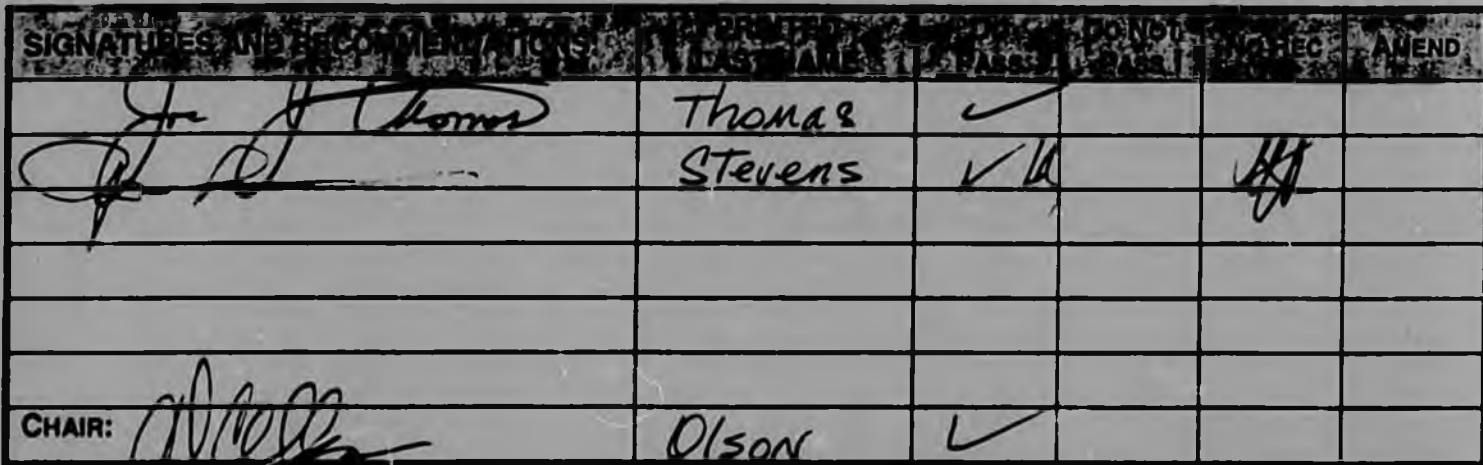 SIGNATURES AND RECOMMENDATIONS PRINTED LAST NAME DO PASS DO NOT PASS NO REC AMEND
Joe Thomas Thomas ✓
Stevens ✓
CHAIR: Olson ✓